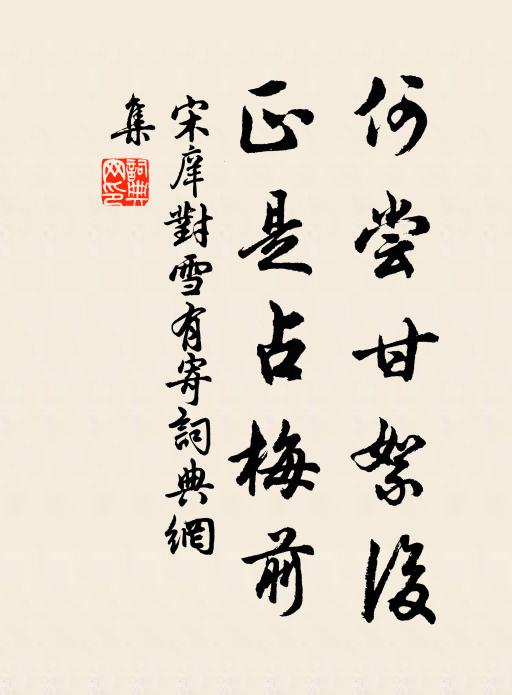 何尝甘絮後
正是占梅前
宋庠對雪有寄詞典網
集
詞典
网印